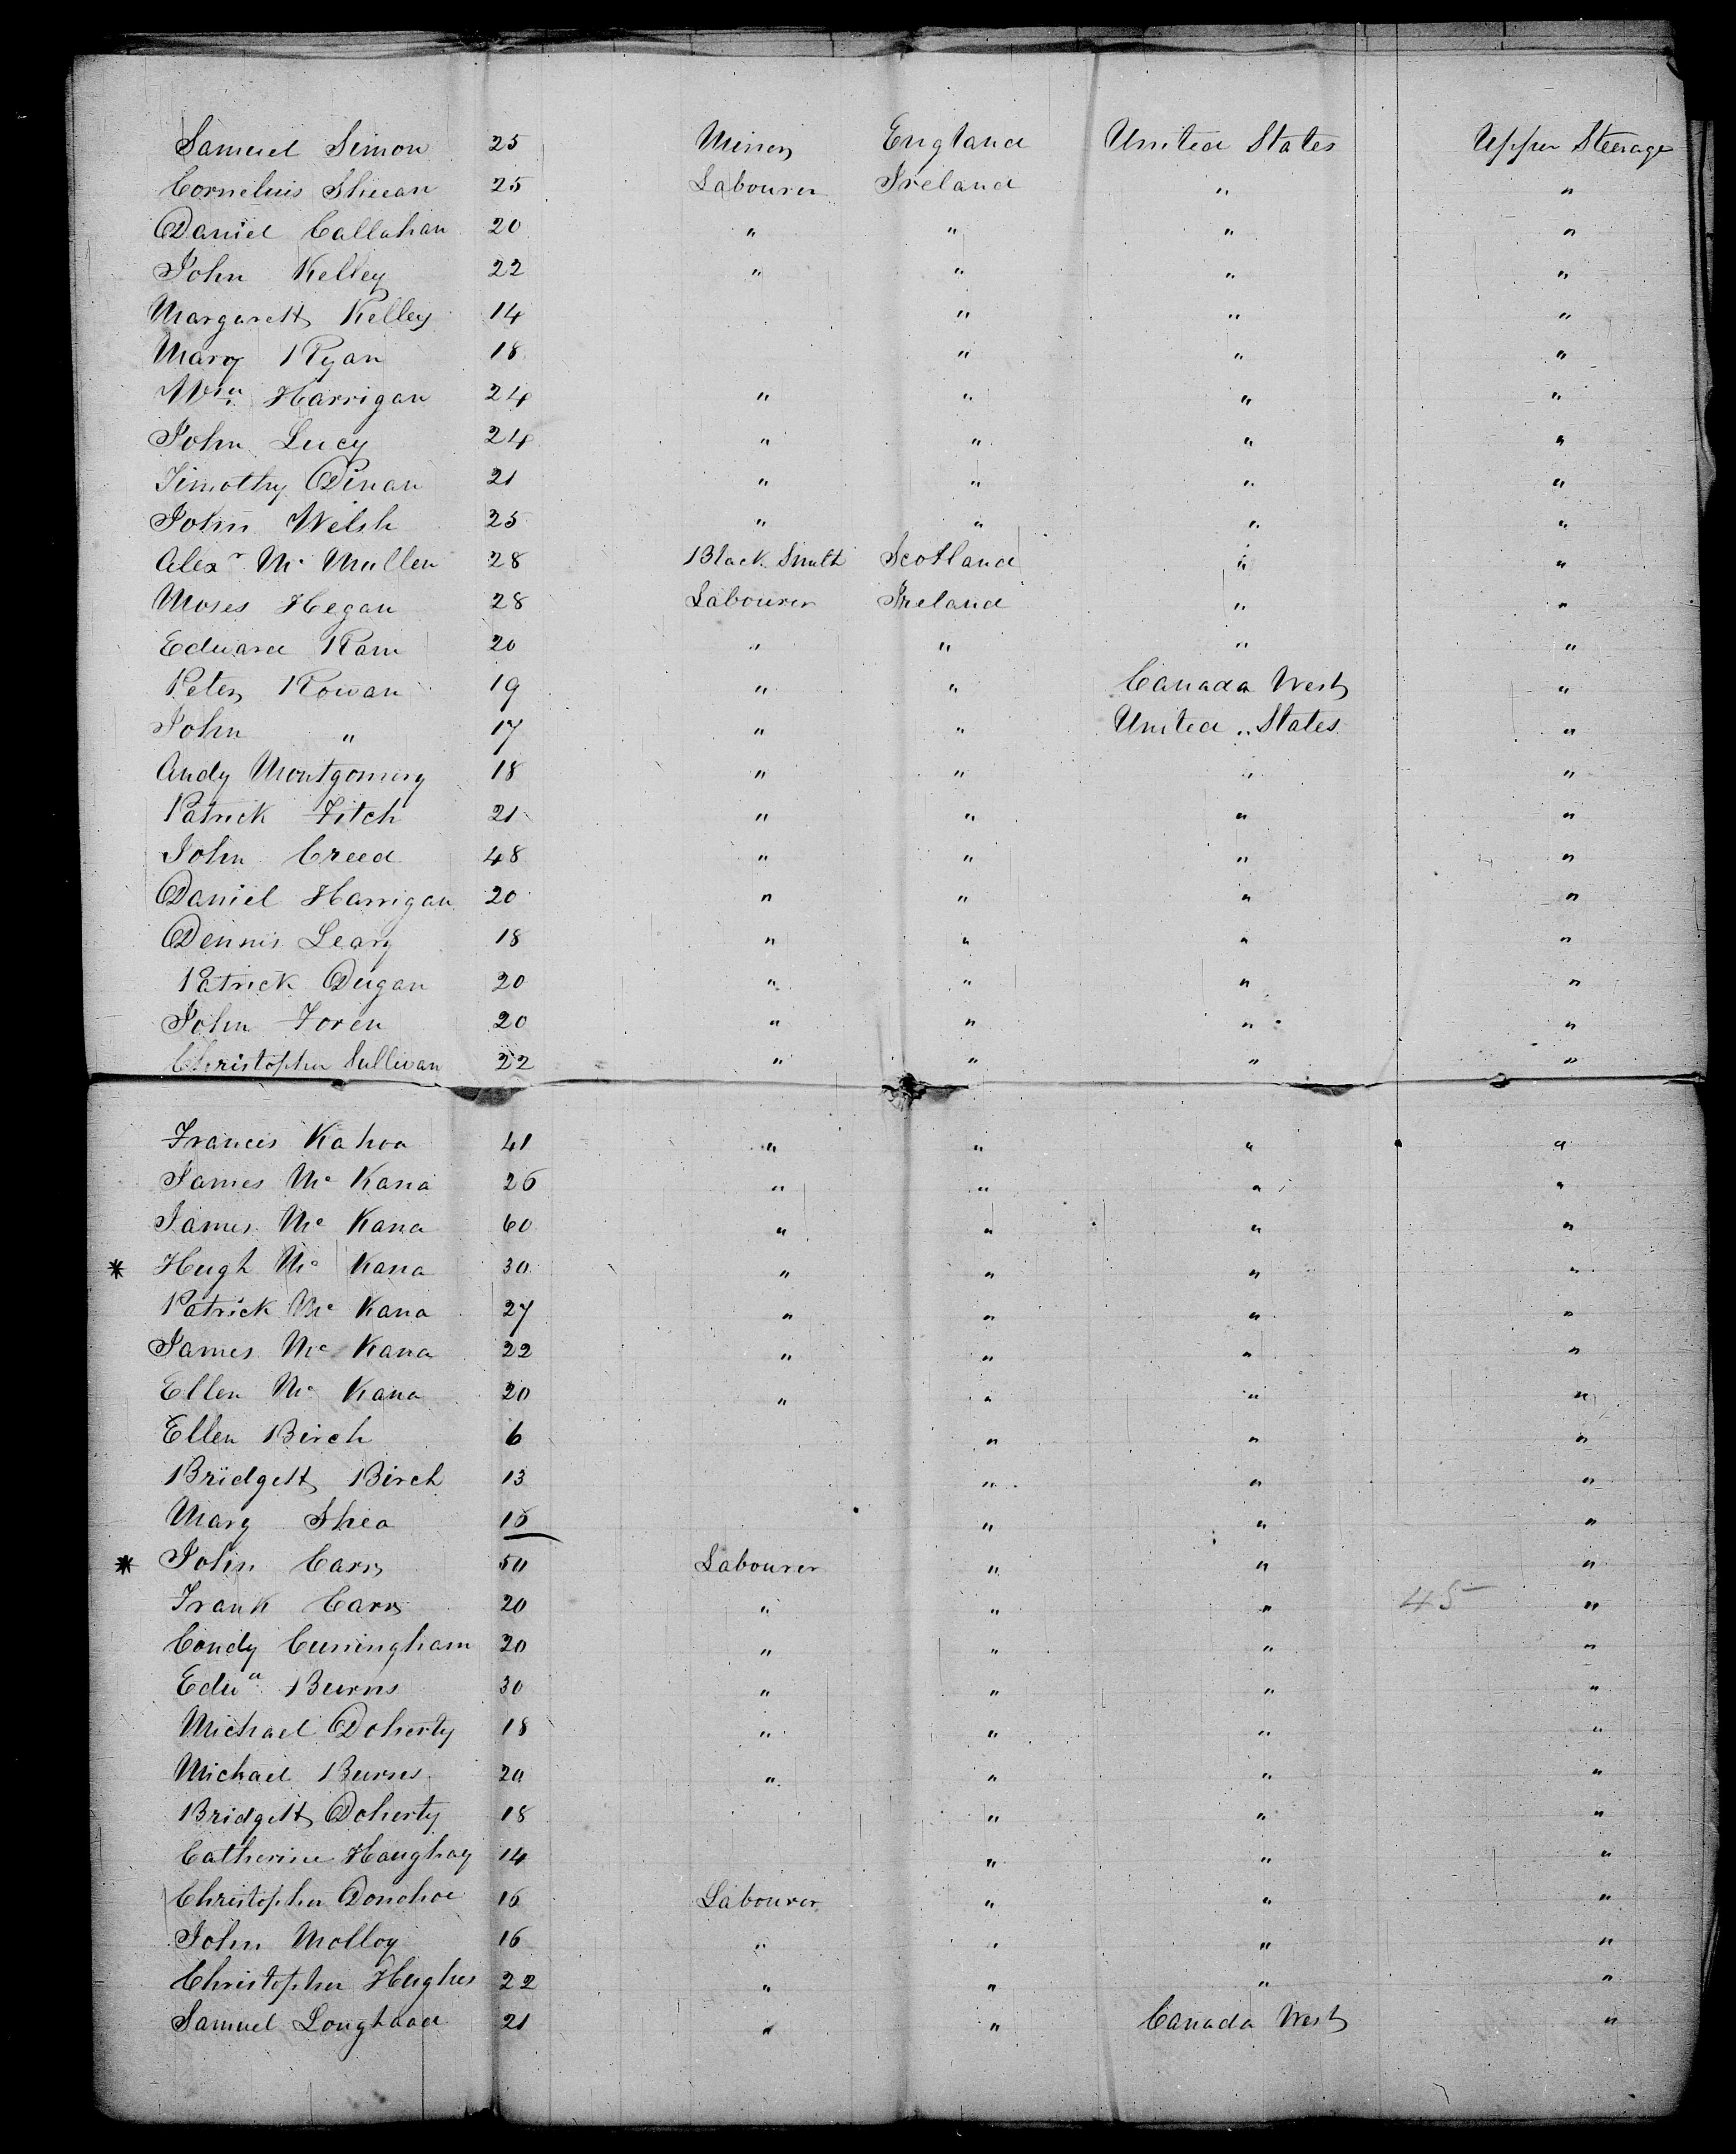 Samuel Simon 25 Miner England United States Upper Steerage
Cornelius Sheean 25 Labourer Ireland " "
Daniel Callahan 20 " " " "
John Kelley 22 " " " "
Margarett Kelley 14 " " "
Mary Ryan 18 " " "
Wm Harrigan 24 " " " "
John Lucy 24 " " " "
Timothy Dinan 21 " " " "
John Welsh 25 " " " "
Alexr Mc Mullen 28 Black Smith Scotland " "
Moses Hegan 28 Labourer Ireland " "
Edward Ram 20 " " " "
Peter Rowan 19 " " Canada West "
John " 17 " " United States "
Andy Montgomery 18 " " " "
Patrick Fitch 21 " " " "
John Creed 48 " " " "
Daniel Harrigan 20 " " " "
Dennis Leary 18 " " " "
Patrick Dugan 20 " " " "
John Foren 20 " " " "
Christopher Sullivan 22 " " " "
Francis Kahoa 41 " " " "
James Mc Kana 26 " " " "
James Mc Kana 60 " " " "
* Hugh Mc Kana 30 " " " "
Patrick Mc Kana 27 " " " "
James Mc Kana 22 " " " "
Ellen Mc Kana 20 " " " "
Ellen Birch 6 " " "
Bridgett Birch 13 " " "
Mary Shea 15 " " "
* John Carr 50 Labourer " " "
Frank Carr 20 " " " 45 "
Condy Cuningham 20 " " " "
Edwd Burns 30 " " " "
Michael Doherty 18 " " " "
Michael Burns 20 " " " "
Bridgett Doherty 18 " " "
Catherine Haughay 14 " " "
Christopher Donohoe 16 Labourer " " "
John Molloy 16 " " " "
Christopher Hughes 22 " " " "
Samuel 21 " " Canada West "